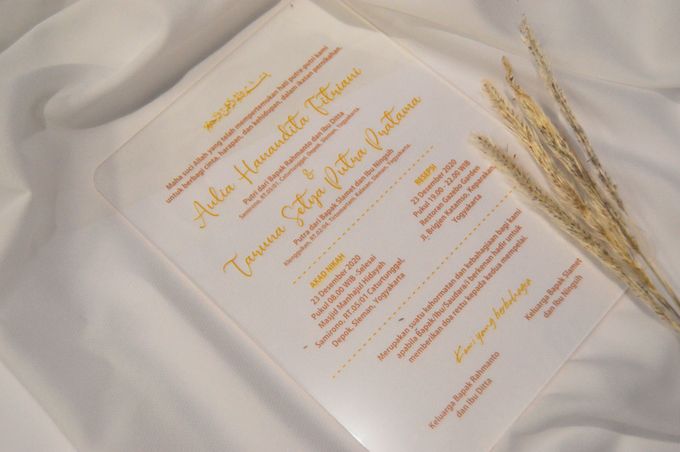 Maha suci Allah yang telah mempertemukan hati putra-putri kami
untuk berbagi cinta, harapan, dan kehidupan, dalam ikatan pernikahan.
Aulia Hanandita Fitriani
Putri dari Bapak Rahmanto dan Ibu Ditta
Samirono, RT.05/01, Caturtunggal, Depok, Sleman, Yogyakarta.
&
Taruna Setya Putra Pratama
Putra dari Bapak Slamet dan Ibu Ningsih
RT.02/04, Tirtomartani, Kalasan, Sleman, Yogyakarta.
AKAD NIKAH
23 Desember 2020
Pukul 08.00 WIB -Selesai
Masjid Manhajul Hidayah
Samirono, RT.05/01 Caturtunggal,
Depok, Sleman, Yogyakarta
RESEPSI
23 Desember 2020
Pukul 19.00 - 22.00 WIB
Restoran Gazebo Garden
Jl. Brigjen Katamso, Keparakan,
Yogyakarta
Merupakan suatu kehormatan dan kebahagiaan bagi kami
apabila Bapak/Ibu/Saudara/i berkenan hadir untuk
memberikan doa restu kepada kedua mempelai.
Kami yang berbahagia
Keluarga Bapak Rahmanto
dan Ibu Ditta
Keluarga Bapak Slamet
dan Ibu Ningsih